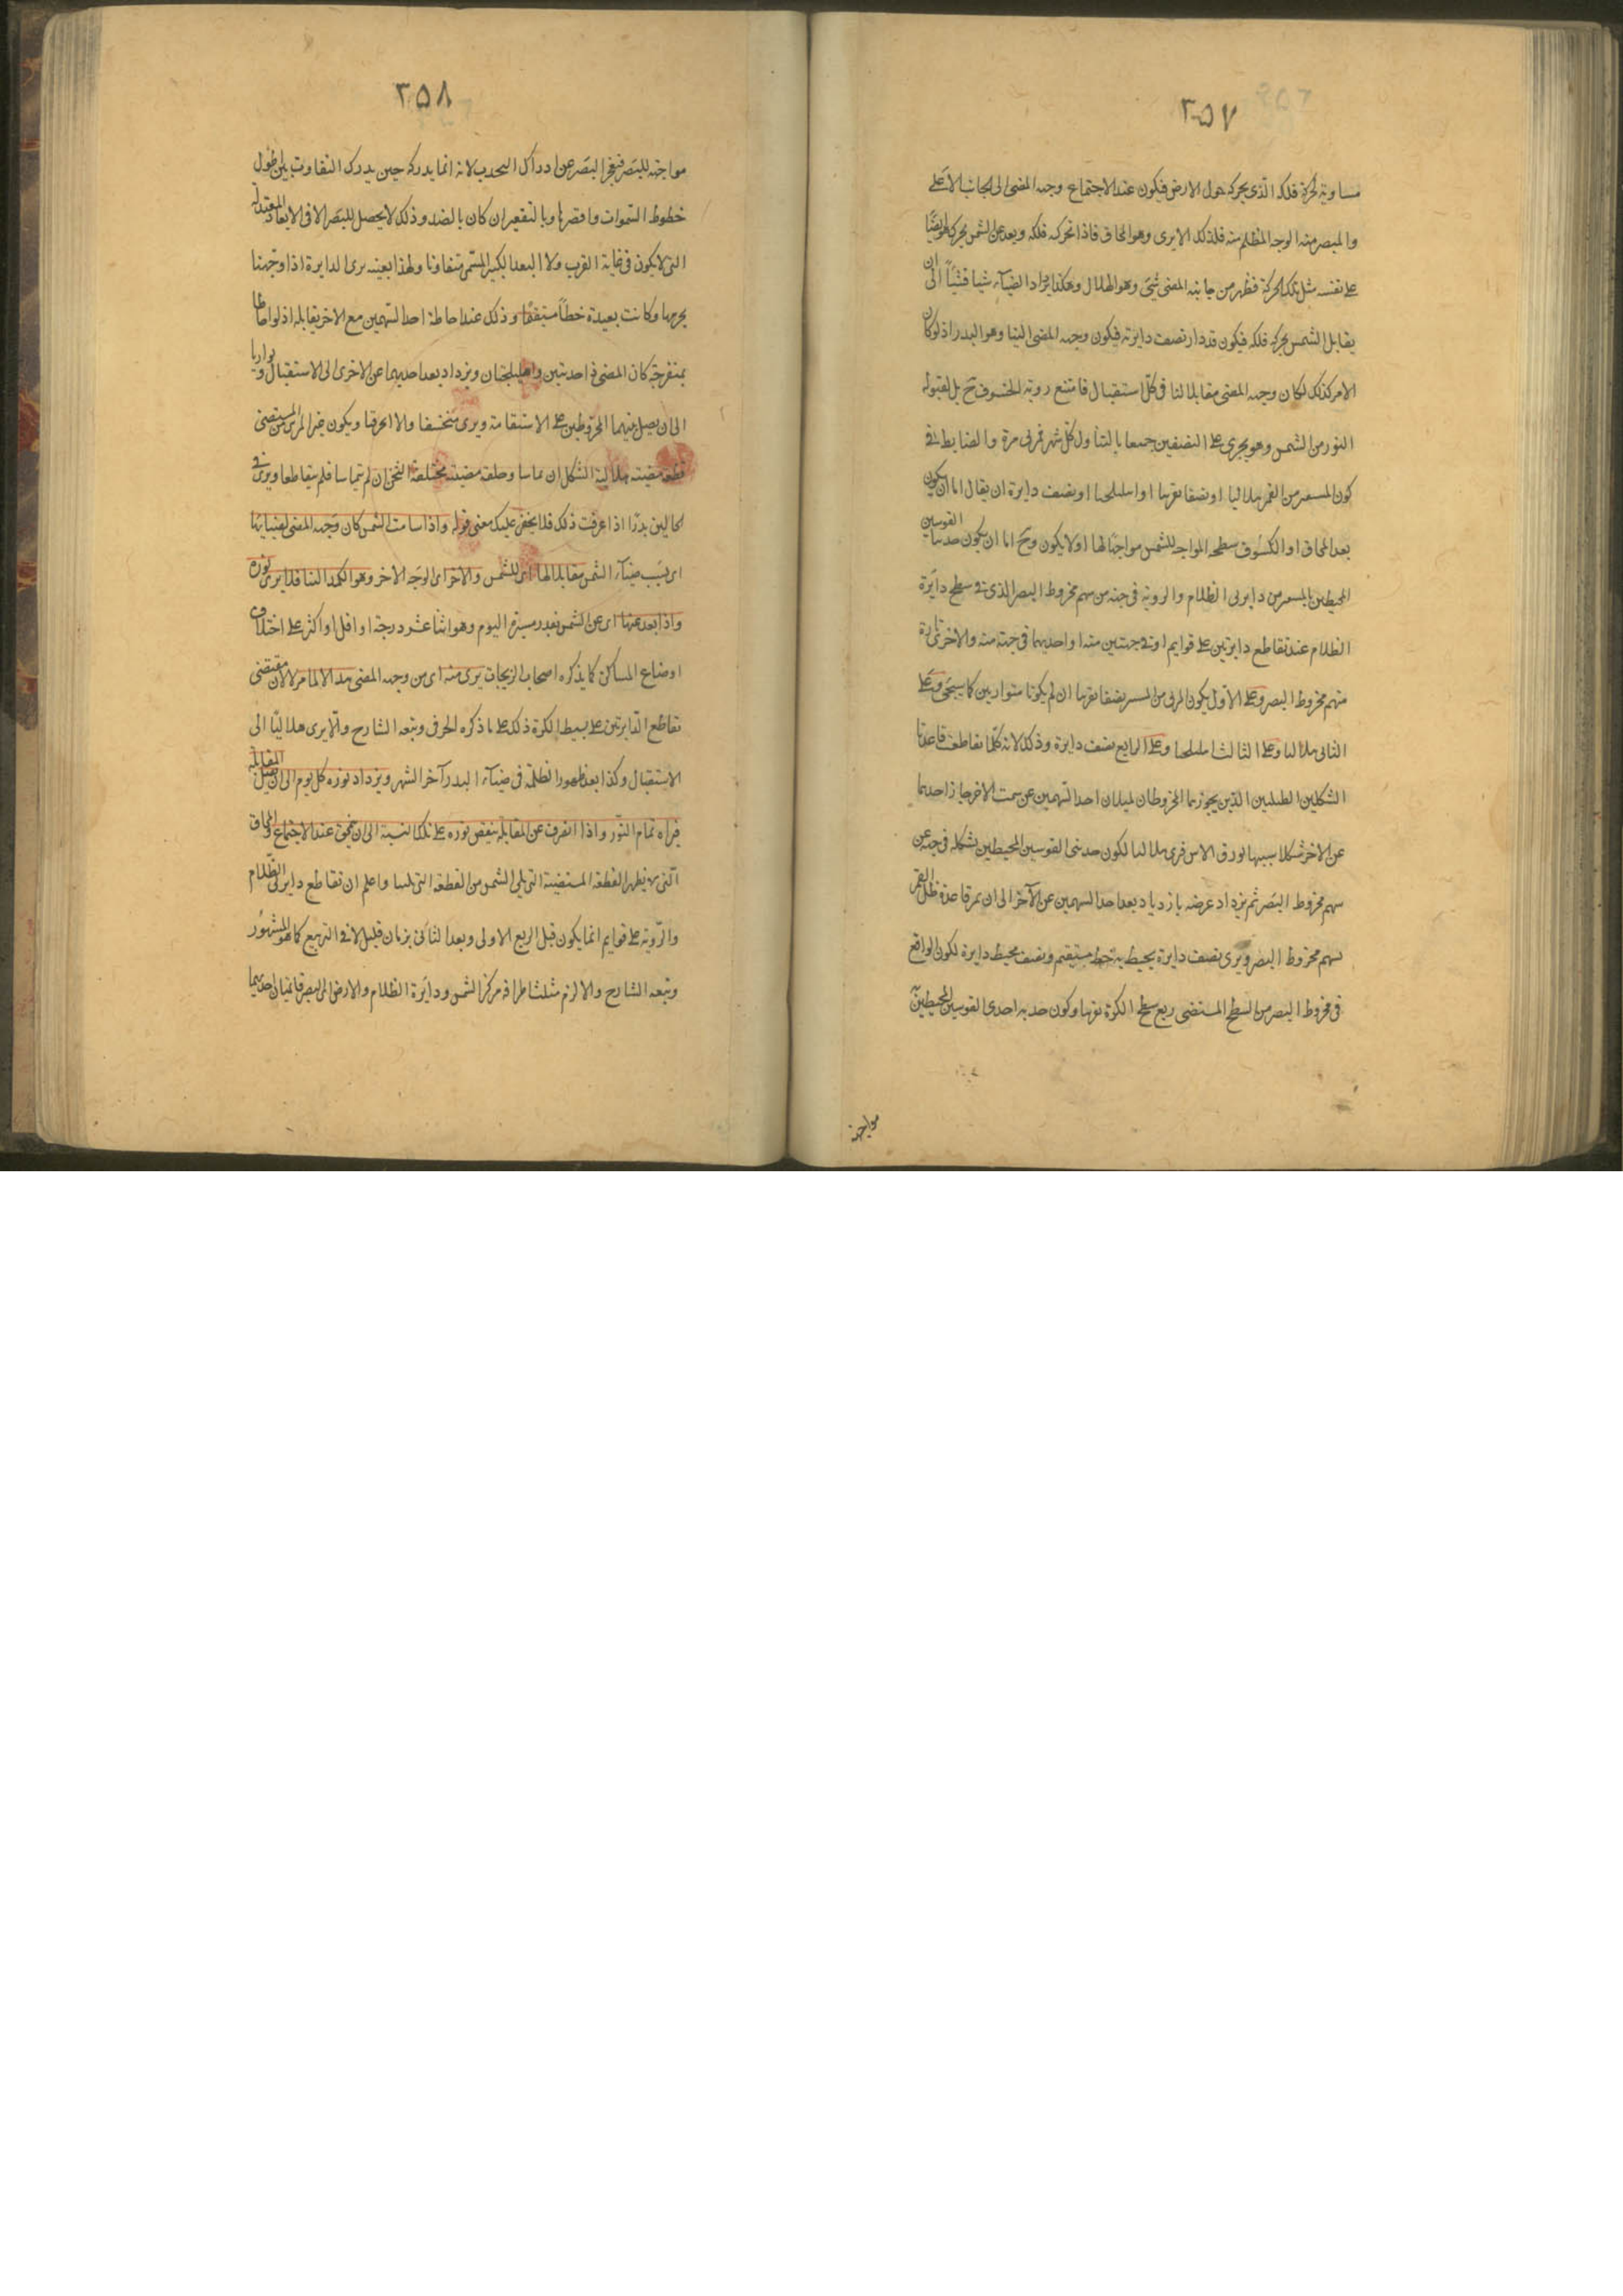 ٣٥٧
مساوية لحركة فلكه الذى يحركه حول الارض فيكون عند الاجتماع وجهه المضى الى الجانب الاعلى
والمبصر منه الوجه المظلم منه فلذلك لا يرى وهو المحاق فاذا تحرك فلكه وبعد عن الشمس يحرك هو ايضا
على نفسه مثل تلك الحركة فظهر من جانبه المضى شئ وهو الهلال وهكذا يزاد الضياء شيا فشيا الى ان
يقابل الشمس بحركة فلكه فيكون قد دار نصف دايرته فيكون وجهه المضى الينا وهو البدر اذ لو كان
الامر كذلك لكان وجهه المضى مقابلا لنا فى كل استقبال فامتنع روية الخسوف تح بل لقبوله
النور من الشمس وهو يجرى على النصفين جميعا بالتناول كل شهر قمرى مرة والضابط فى
كون المستنير من القمر هلاليا او نصفا تقريبا او اهليلجيا او نصف دايرة ان يقال اما ان يكون
بعد المحاق او الكسوف سطحه المواجه للشمس مواجها لها اولا يكون وتح اما ان يكون حدبتا القوسين
المحيطين بالمستنير من دايرتى الظلام والروية فى جهة من سهم مخروط البصر الذى فى سطح دايرة
الظلام عند تقاطع دايرتين على قوايم او فى جهتين منه او احديهما فى جهة منه والاخرى تارة
منهم مخروط البصر وعلى الاول يكون المرئى من المستنير نصفا تقريبا ان لم يكونا متوازيين كما سيجى وعلى
الثانى هلاليا وعلى الثالث اهليلجيا وعلى الرابع نصف دايرة وذلك لانه كلما تقاطعت قاعدتا
الشكلين الظليلين الذين يحوزهما المخروطان لميلان احد السهمين عن سمت الاخر جاز احديهما
عن الاخر شكلا شبيها بورق الاس فيرى هلاليا لكون حدبتى القوسين المحيطين بشكله فى جهة عن
سهم مخروط البصر ثم يزداد عرضه بازدياد بعد احد السهمين عن الآخر الى ان يمر قاعدة ظل القمر
بسهم مخروط البصر ويرى نصف دايرة يحيط به خط مستقيم ونصف محيط دايرة لكون الواقع
فى مخروط البصر من السطح المستضى ربع سطح الكرة تقريبا وكون حدبة احدى القوسين المحيطين
مواجهة
٣٥٨
مواجهة للبصر فيعجز البصر عن ادراك التحدب لانه انما يدركه حين يدرك التفاوت بين طول
خطوط السموات واقصرها وبالتقعير ان كان بالضد وذلك لا يحصل للبصر الا فى الابعاد المعتدلة
التى لا يكون فى غاية القرب ولا البعد الكثير المستمر متفاوتا ولهذا بعينه يرى الدايرة اذا وجهنا
بجرمها وكانت بعيدة خطا مستقيما وذلك عند احاطة احد السهمين مع الاخر بقايمة اذ لو احاطا
بمنفرجة كان المضى ذا حدبتين واهليلجتان ويزداد بعد احديهما عن الاخرى الى الاستقبال ويوازيا
الى ان يصل سهما المخروطين على الاستقامة ويرى منخسفا والا انحرفا ويكون غير المرئى من المستضى
قطعة مضيئة هلالية الشكل ان تماسا وحلقة مضيئة مختلفة الثخن ان لم يتماسا فلم يتقاطعا ويرى فى
الحالين بدرا اذا عرفت ذلك فلا يخفى عليك معنى قوله واذا سامت الشمس كان وجهه المضى لضيائها
اى بسبب ضياء الشمس مقابلا لها اى للشمس والاخر اى الوجه الاخر وهو الكمد الينا فلا يرى نوره
واذا بعد عنها اى عن الشمس بقدر مسيرة اليوم وهو اثنا عشر درجة او اقل او اكثر على اختلاف
اوضاع المساكن كما يذكره اصحاب الزيجات يرى منه اى من وجهه المضى هلالا لما مر لا لان مقتضى
تقاطع الدايرتين على بسيط الكرة ذلك على ما ذكره الخرقى وتبعه الشارح والا يرى هلاليا الى
الاستقبال وكذا بعد ظهور الظلمة فى ضياء البدر آخر الشهر ويزداد نوره كل يوم الى ان يصل المقابلة
فيراه تمام النور واذا انصرف عن المقابلة ينقص نوره على تلك النسبة الى ان يمحق عند الاجتماع والمحاق
التى لا يظهر القطعة المستضيئة التى يلى الشمس من القطعة التى تلينا واعلم ان تقاطع دايرتى الظلام
والروية على قوايم انما يكون قبل الربيع الاولى وبعد الثانى بزمان قليل لا فى التربيع كما هو المشهور
وتبعه الشارح والا لزم مثلثا طرافه مركز الشمس ودايرة الظلام والارض او البصر قايمتان احديهما